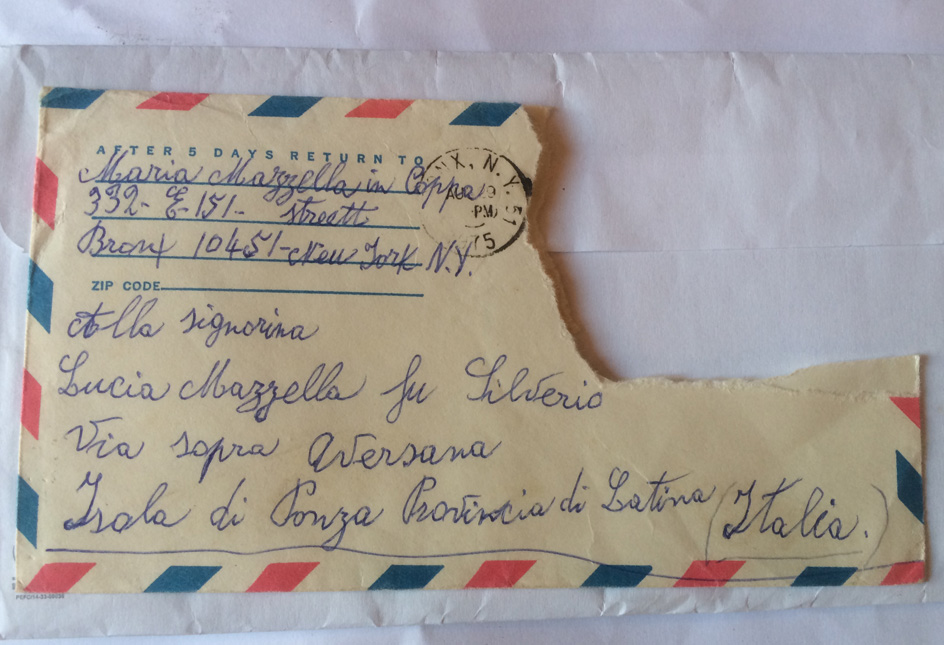 AFTER 5 DAYS RETURN TO
Maria Mazzella in Coppa
332- E-151- streett
Bronx 10451-New York N.Y.
ZIP CODE
X, N.Y.
AUG 29
PM
1975
51
Alla signorina
Lucia Mazzella fu Silverio
Via sopra Aversana
Isola di Ponza Provincia di Latina (Italia.)